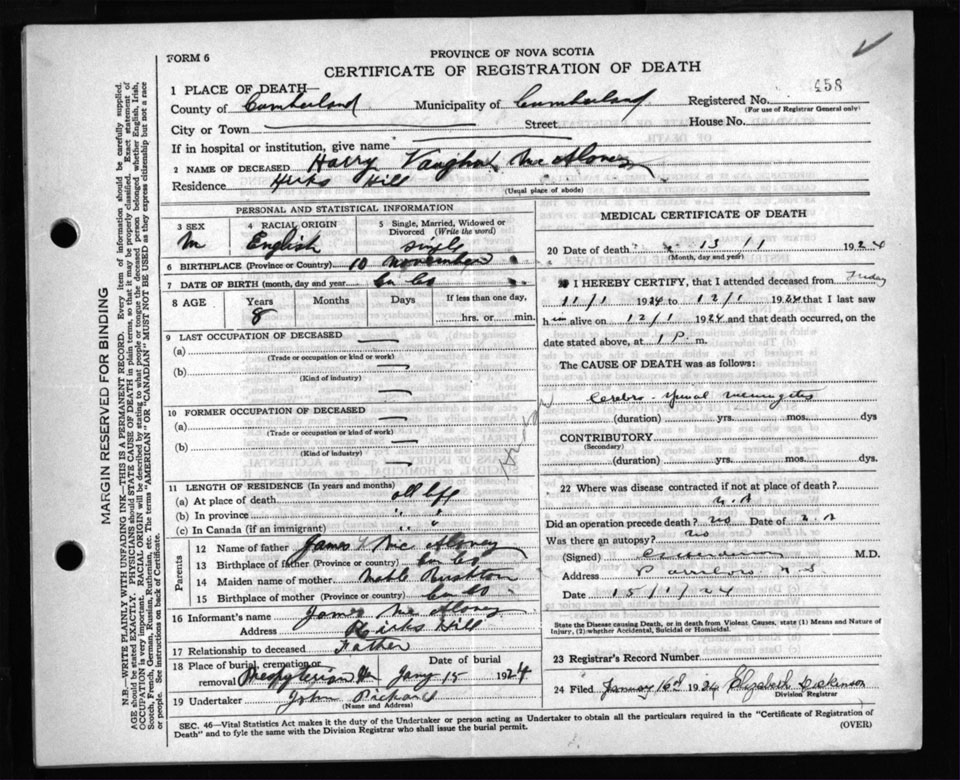 FORM 6
PROVINCE OF NOVA SCOTIA
CERTIFICATE OF REGISTRATION OF DEATH
458
1 PLACE OF DEATH—
County of Cumberland Municipality of Cumberland Registered No.
(For use of Registrar General only)
City or Town Street House No.
If in hospital or institution, give name
2 NAME OF DECEASED Harry Vaughn McAloney
Residence Kirks Hill
(Usual place of abode)
PERSONAL AND STATISTICAL INFORMATION
3 SEX 4 RACIAL ORIGIN 5 Single, Married, Widowed or Divorced (Write the word)
M English Single
6 BIRTHPLACE (Province or Country) 10 November
7 DATE OF BIRTH (month, day and year) Cum Co
8 AGE Years Months Days If less than one day,
8 hrs. or min.
9 LAST OCCUPATION OF DECEASED
(a)
(Trade or occupation or kind or work)
(b)
(Kind of industry)
10 FORMER OCCUPATION OF DECEASED
(a)
(Trade or occupation or kind of work)
(b)
(Kind of industry)
11 LENGTH OF RESIDENCE (In years and months)
(a) At place of death all life
(b) In province " "
(c) In Canada (if an immigrant) " "
Parents
12 Name of father James McAloney
13 Birthplace of father (Province or country) Cum Co
14 Maiden name of mother Rushton
15 Birthplace of mother (Province or country) Cum Co
16 Informant's name James McAloney
Address Kirks Hill
17 Relationship to deceased Father
18 Place of burial, cremation or removal Presbyterian Date of burial Jany 15 1924
19 Undertaker John Pickard
(Name and Address)
MEDICAL CERTIFICATE OF DEATH
20 Date of death 13 / 1 1924
(Month, day and year)
21 I HEREBY CERTIFY, that I attended deceased from Friday
11/1 1924 to 12/1 1924 that I last saw
him alive on 12/1 1924 and that death occurred, on
date stated above, at 1 P. m.
The CAUSE OF DEATH was as follows:
Cerebro-spinal meningitis
(duration) yrs. mos. dys
CONTRIBUTORY
(Secondary)
(duration) yrs. mos. dys.
22 Where was disease contracted if not at place of death?
Did an operation precede death? No Date of
Was there an autopsy? No
(Signed) M.D.
Address Parrsboro N.S.
Date 15/1/24
State the Disease causing Death, or in death from Violent Causes, state (1) Means and Nature of
Injury, (2) whether Accidental, Suicidal or Homicidal.
23 Registrar's Record Number
24 Filed January 16th 1924 Elizabeth Dickinson
Division Registrar
SEC. 46—Vital Statistics Act makes it the duty of the Undertaker or person acting as Undertaker to obtain all the particulars required in the "Certificate of Registration of
Death" and to fyle the same with the Division Registrar who shall issue the burial permit.
(OVER)
MARGIN RESERVED FOR BINDING
N.B.—WRITE PLAINLY WITH UNFADING INK—THIS IS A PERMANENT RECORD. Every item of information should be carefully supplied.
AGE should be stated EXACTLY. PHYSICIANS should STATE CAUSE OF DEATH in plain terms, so that it may be properly classified. Exact statement of
OCCUPATION is very important. RACIAL ORIGIN will be described by stating to what people or tongue the deceased person belonged whether English, Irish,
Scotch, French, German, Russian, Ruthenian, etc. The terms "AMERICAN" OR "CANADIAN" MUST NOT BE USED as they express citizenship but not a race
or people. See instructions on back of Certificate.